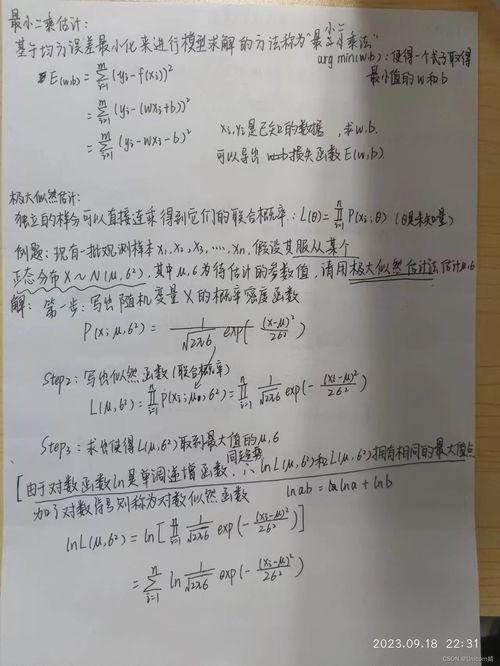 最小二乘估计:
基于均方误差最小化来进行模型求解的方法称为"最小二乘法"
arg min(w,b): 使得一个式子取得
最小值的 w 和 b
E(w,b) = ∑_{i=1}^{m} (y_i - f(x_i))²
= ∑_{i=1}^{m} (y_i - (wx_i + b))²
= ∑_{i=1}^{m} (y_i - wx_i - b)²
x_i, y_i 是已知的数据, 求 w, b.
可以导出 损失函数 E(w,b).
极大似然估计:
独立的样本可以直接连乘得到它们的联合概率: L(θ) = ∏_{i=1}^{n} P(x_i; θ) (θ是未知量)
例题: 现有一批观测样本 x₁, x₂, x₃, ..., x_n, 假设其服从某个
正态分布 X ~ N(μ, σ²), 其中 μ, σ 为待估计的参数值, 请用极大似然估计法估计 μ, σ
解: 第一步: 写出随机变量 X 的概率密度函数
P(x; μ, σ²) = 1/(√2π σ) exp(-(x-μ)²/2σ²)
Step2: 写出似然函数 (联合概率)
L(μ, σ²) = ∏_{i=1}^{n} P(x_i; μ, σ²) = ∏_{i=1}^{n} 1/(√2π σ) exp(-(x_i-μ)²/2σ²)
Step3: 求出使得 L(μ, σ²) 取到最大值的 μ, σ
[由于对数函数 ln 是单调递增函数, ∴ ln L(μ, σ²) 和 L(μ, σ²) 拥有相同的最大值点
加了对数符号则称为对数似然函数
ln ab = ln a + ln b
ln L(μ, σ²) = ln[∏_{i=1}^{n} 1/(√2π σ) exp(-(x_i-μ)²/2σ²)]
= ∑_{i=1}^{n} ln 1/(√2π σ) exp(-(x_i-μ)²/2σ²)
2023.09.18 22:31